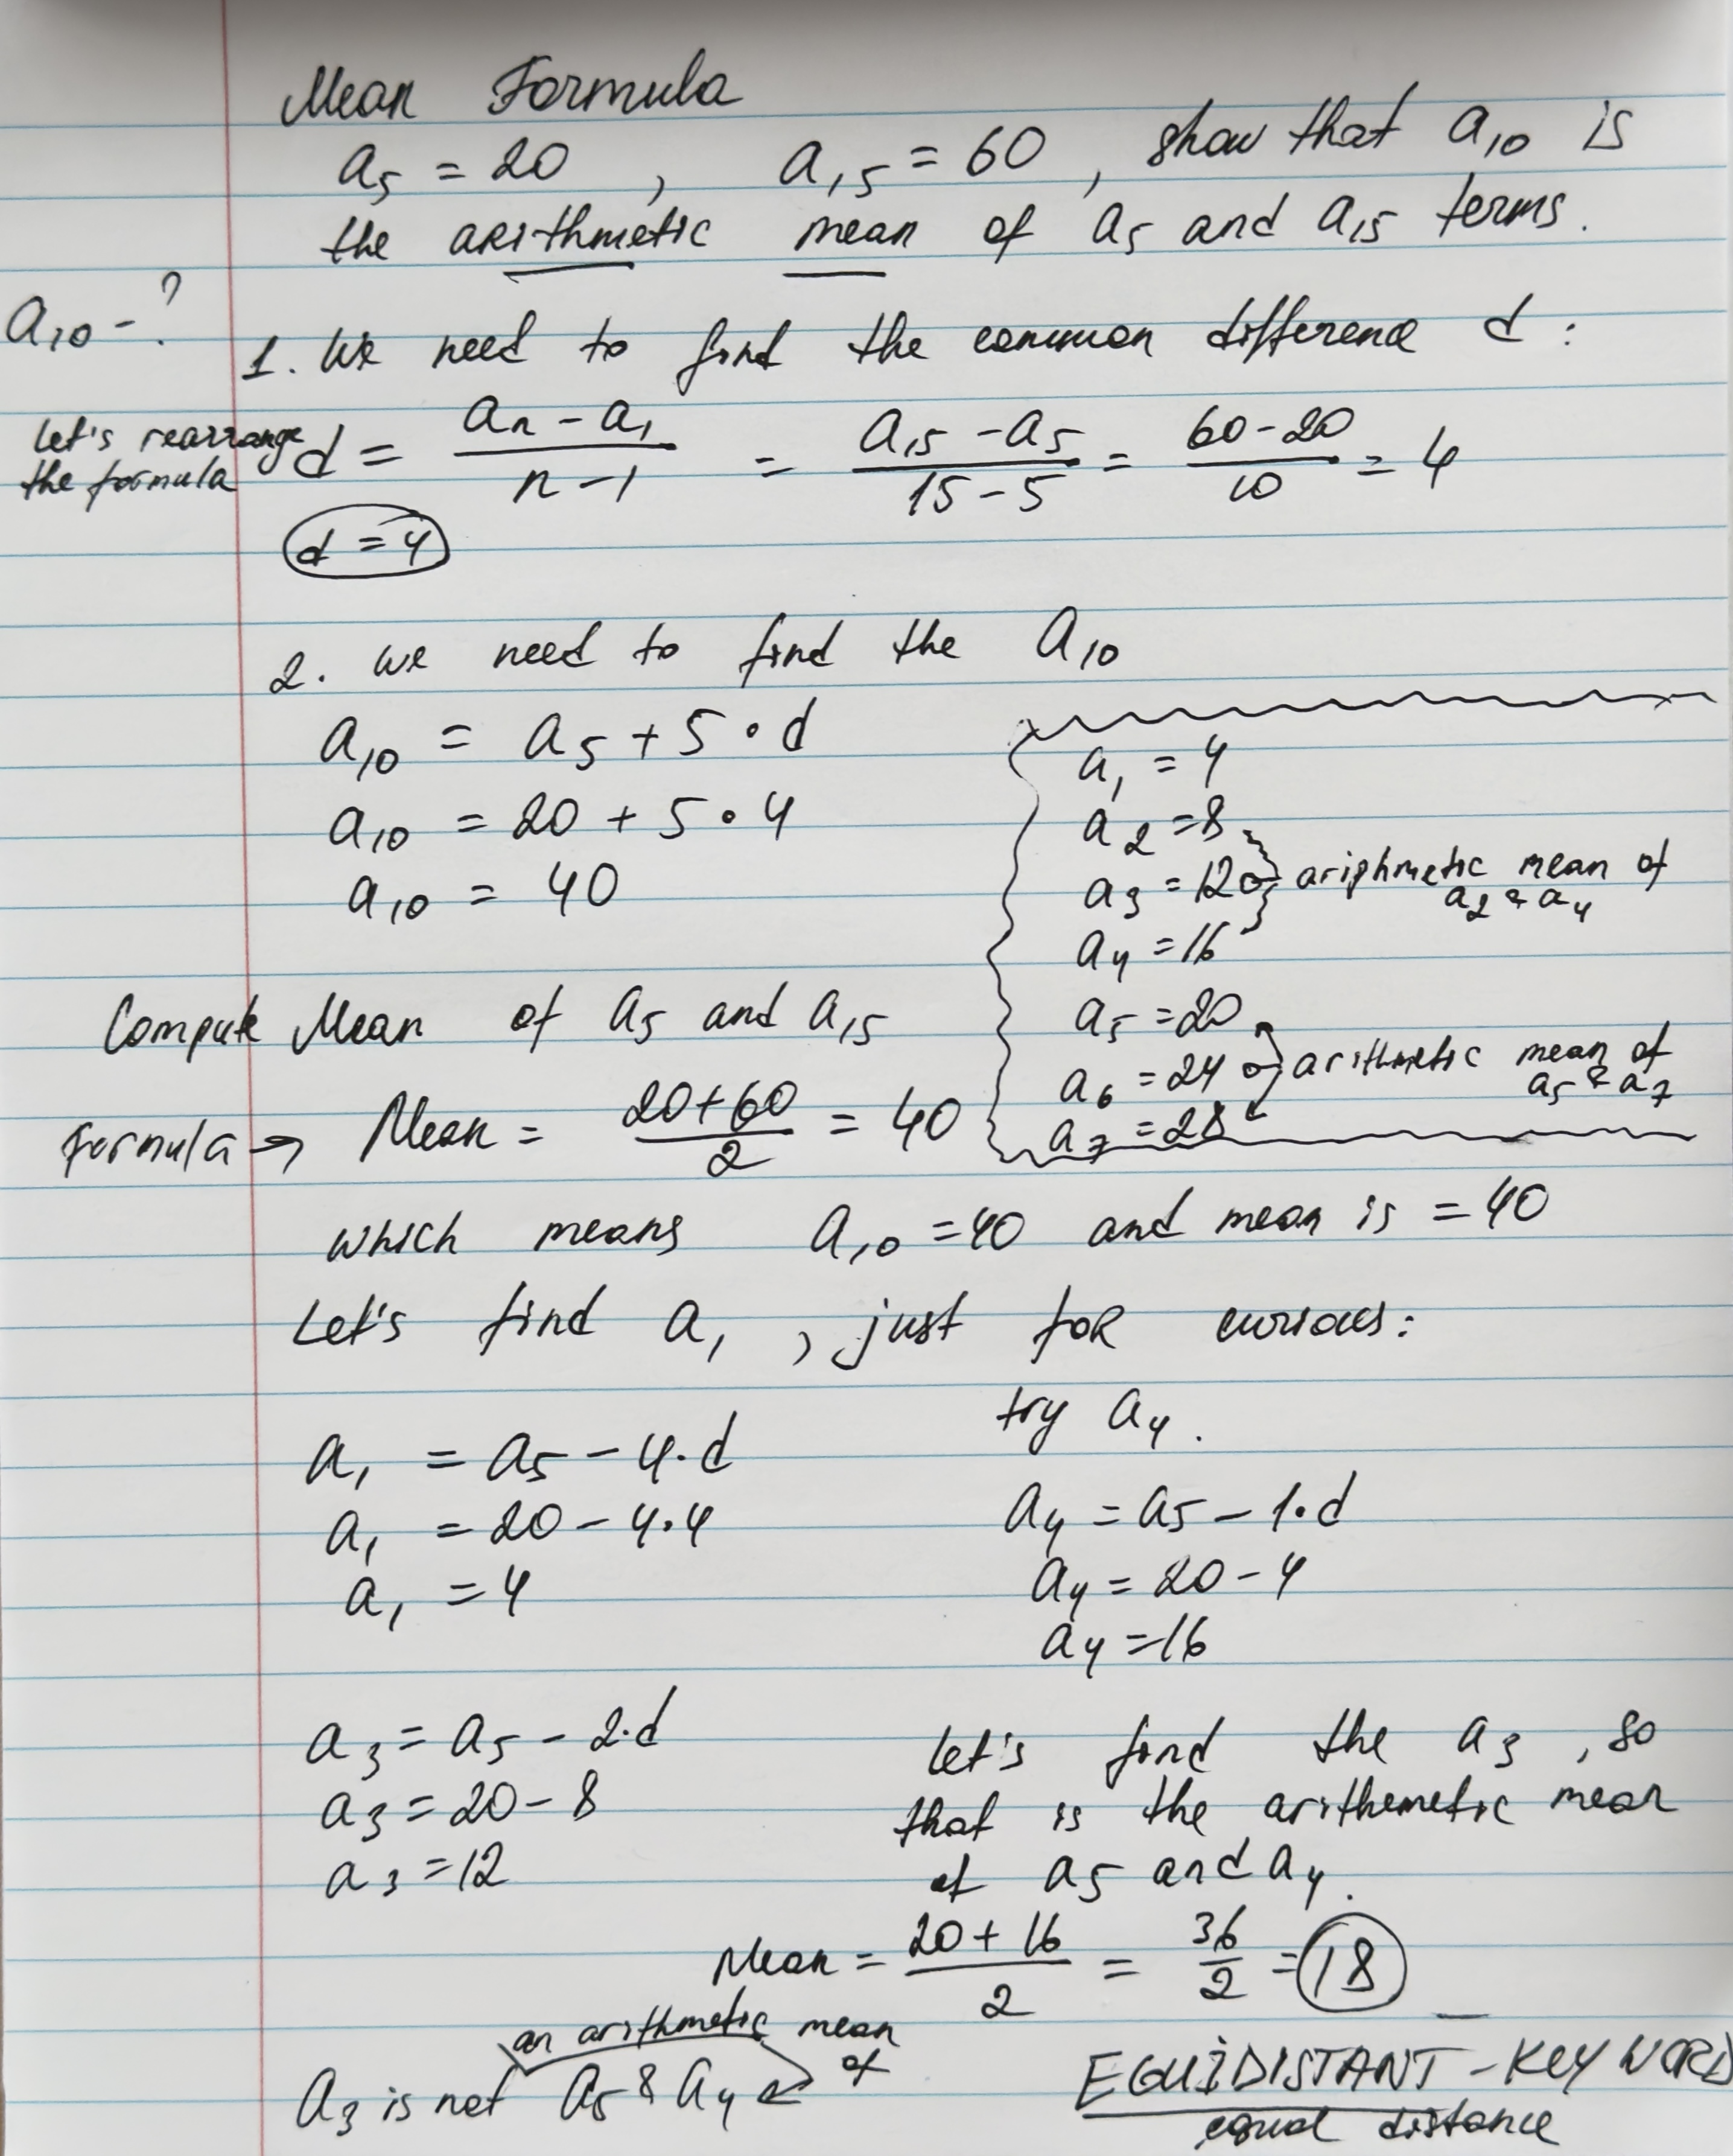 Mean Formula
a₅ = 20 , a₁₅ = 60 , show that a₁₀ is
the arithmetic mean of a₅ and a₁₅ terms.
a₁₀ - ?
1. We need to find the common difference d :
Let's rearrange
the formula
d = (aₙ - a₁)/(n - 1) = (a₁₅ - a₅)/(15 - 5) = (60 - 20)/10 = 4
d = 4
2. we need to find the a₁₀
a₁₀ = a₅ + 5 · d
a₁₀ = 20 + 5 · 4
a₁₀ = 40
a₁ = 4
a₂ = 8
a₃ = 12 ariphmetic mean of
a₂ & a₄
a₄ = 16
a₅ = 20
a₆ = 24 arithmetic mean of
a₅ & a₇
a₇ = 28
Compute Mean of a₅ and a₁₅
Formula → Mean = (20+60)/2 = 40
which means a₁₀ = 40 and mean is = 40
Let's find a₁ , just for curious:
a₁ = a₅ - 4·d
a₁ = 20 - 4·4
a₁ = 4
try a₄.
a₄ = a₅ - 1·d
a₄ = 20 - 4
a₄ = 16
a₃ = a₅ - 2·d
a₃ = 20 - 8
a₃ = 12
Let's find the a₃ , so
that is the arithemetic mean
of a₅ and a₄.
Mean = (20 + 16)/2 = 36/2 = 18
an arithmetic mean
of
a₃ is not a₅ & a₄
EQUIDISTANT - KEY WORD
equal distance